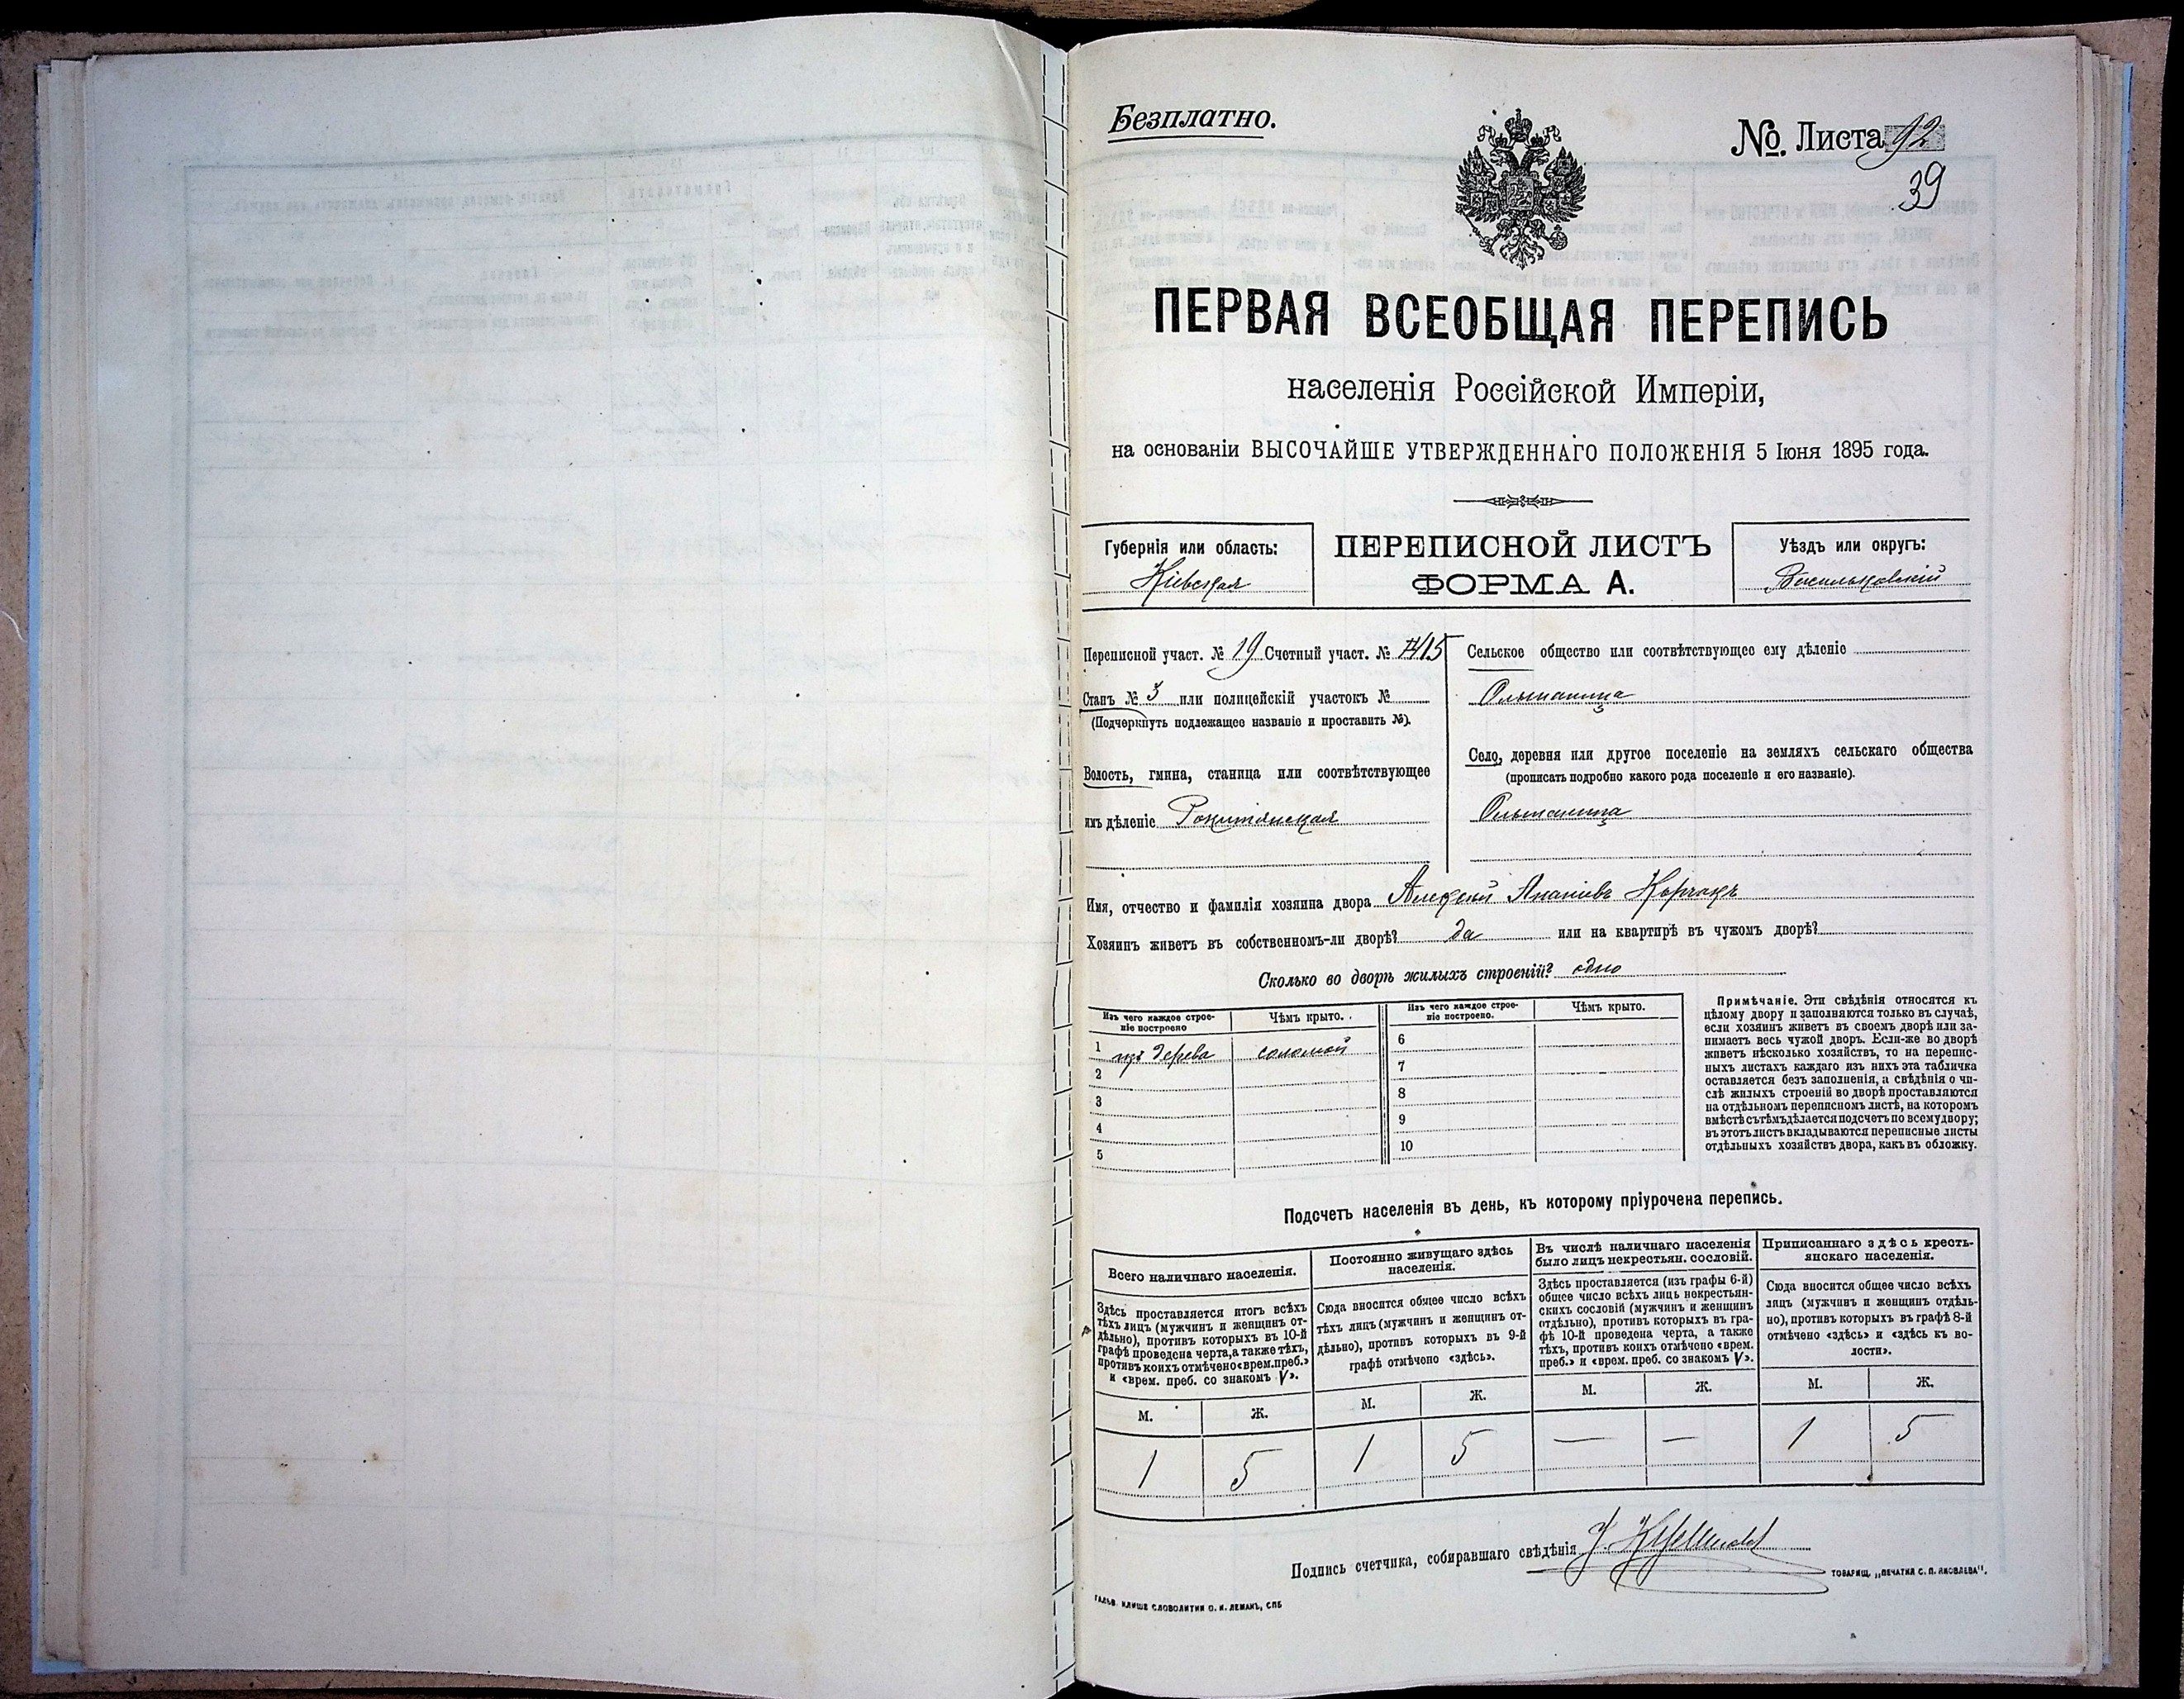 Безплатно.
№ Листа 92
39
ПЕРВАЯ ВСЕОБЩАЯ ПЕРЕПИСЬ
населенія Россійской Имперіи,
на основаніи ВЫСОЧАЙШЕ УТВЕРЖДЕННАГО ПОЛОЖЕНІЯ 5 Іюня 1895 года.
Губернія или область:
Кіевская
ПЕРЕПИСНОЙ ЛИСТЪ
ФОРМА А.
Уѣздъ или округъ:
Васильковскій
Переписной участ. № 19 Счетный участ. № 15
Станъ № 3 или полицейскій участокъ №
(Подчеркнуть подлежащее названіе и проставить №).
Волость, гмина, станица или соотвѣтствующее
имъ дѣленіе Рокитянская
Сельское общество или соотвѣтствующее ему дѣленіе
Ольшаница
Село, деревня или другое поселеніе на земляхъ сельскаго общества
(прописать подробно какого рода поселеніе и его названіе).
Ольшаница
Имя, отчество и фамилія хозяина двора Алексѣй Ананіевъ Корчакъ
Хозяинъ живетъ въ собственномъ-ли дворѣ? да или на квартирѣ въ чужомъ дворѣ?
Сколько во дворѣ жилыхъ строеній? одно
Изъ чего каждое строе-
ніе построено
Чѣмъ крыто.
1 изъ дерева соломой
2
3
4
5
Изъ чего каждое строе-
ніе построено.
Чѣмъ крыто.
6
7
8
9
10
Примѣчаніе. Эти свѣдѣнія относятся къ
цѣлому двору и заполняются только въ случаѣ,
если хозяинъ живетъ въ своемъ дворѣ или за-
нимаетъ весь чужой дворъ. Если-же во дворѣ
живетъ нѣсколько хозяйствъ, то на перепис-
ныхъ листахъ каждаго изъ нихъ эта табличка
оставляется безъ заполненія, а свѣдѣнія о чи-
слѣ жилыхъ строеній во дворѣ проставляются
на отдѣльномъ переписномъ листѣ, на которомъ
вмѣстѣ съ тѣмъ дѣлается подсчетъ по всему двору;
въ этотъ листъ вкладываются переписные листы
отдѣльныхъ хозяйствъ двора, какъ въ обложку.
Подсчетъ населенія въ день, къ которому пріурочена перепись.
Всего наличнаго населенія.
Здѣсь проставляется итогъ всѣхъ
тѣхъ лицъ (мужчинъ и женщинъ от-
дѣльно), противъ которыхъ въ 10-й
графѣ проведена черта, а также тѣхъ,
противъ коихъ отмѣчено «врем. преб.»
и «врем. преб. со знакомъ V».
М. Ж.
1 5
Постоянно живущаго здѣсь
населенія.
Сюда вносится общее число всѣхъ
тѣхъ лицъ (мужчинъ и женщинъ от-
дѣльно), противъ которыхъ въ 9-й
графѣ отмѣчено «здѣсь».
М. Ж.
1 5
Въ числѣ наличнаго населенія
было лицъ некрестьян. сословій.
Здѣсь проставляется (изъ графы 6-й)
общее число всѣхъ лицъ некрестьян-
скихъ сословій (мужчинъ и женщинъ
отдѣльно), противъ которыхъ въ гра-
фѣ 10-й проведена черта, а также
тѣхъ, противъ коихъ отмѣчено «врем.
преб.» и «врем. преб. со знакомъ V».
М. Ж.
— —
Приписаннаго здѣсь кресть-
янскаго населенія.
Сюда вносится общее число всѣхъ
лицъ (мужчинъ и женщинъ отдѣль-
но), противъ которыхъ въ графѣ 8-й
отмѣчено «здѣсь» и «здѣсь къ во-
лости».
М. Ж.
1 5
Подпись счетчика, собиравшаго свѣдѣнія
ТОВАРИЩ. „ПЕЧАТНЯ С. П. ЯКОВЛЕВА".
ГАЛЬВ. КЛИШЕ СЛОВОЛИТНИ О. И. ЛЕМАНЪ, СПБ